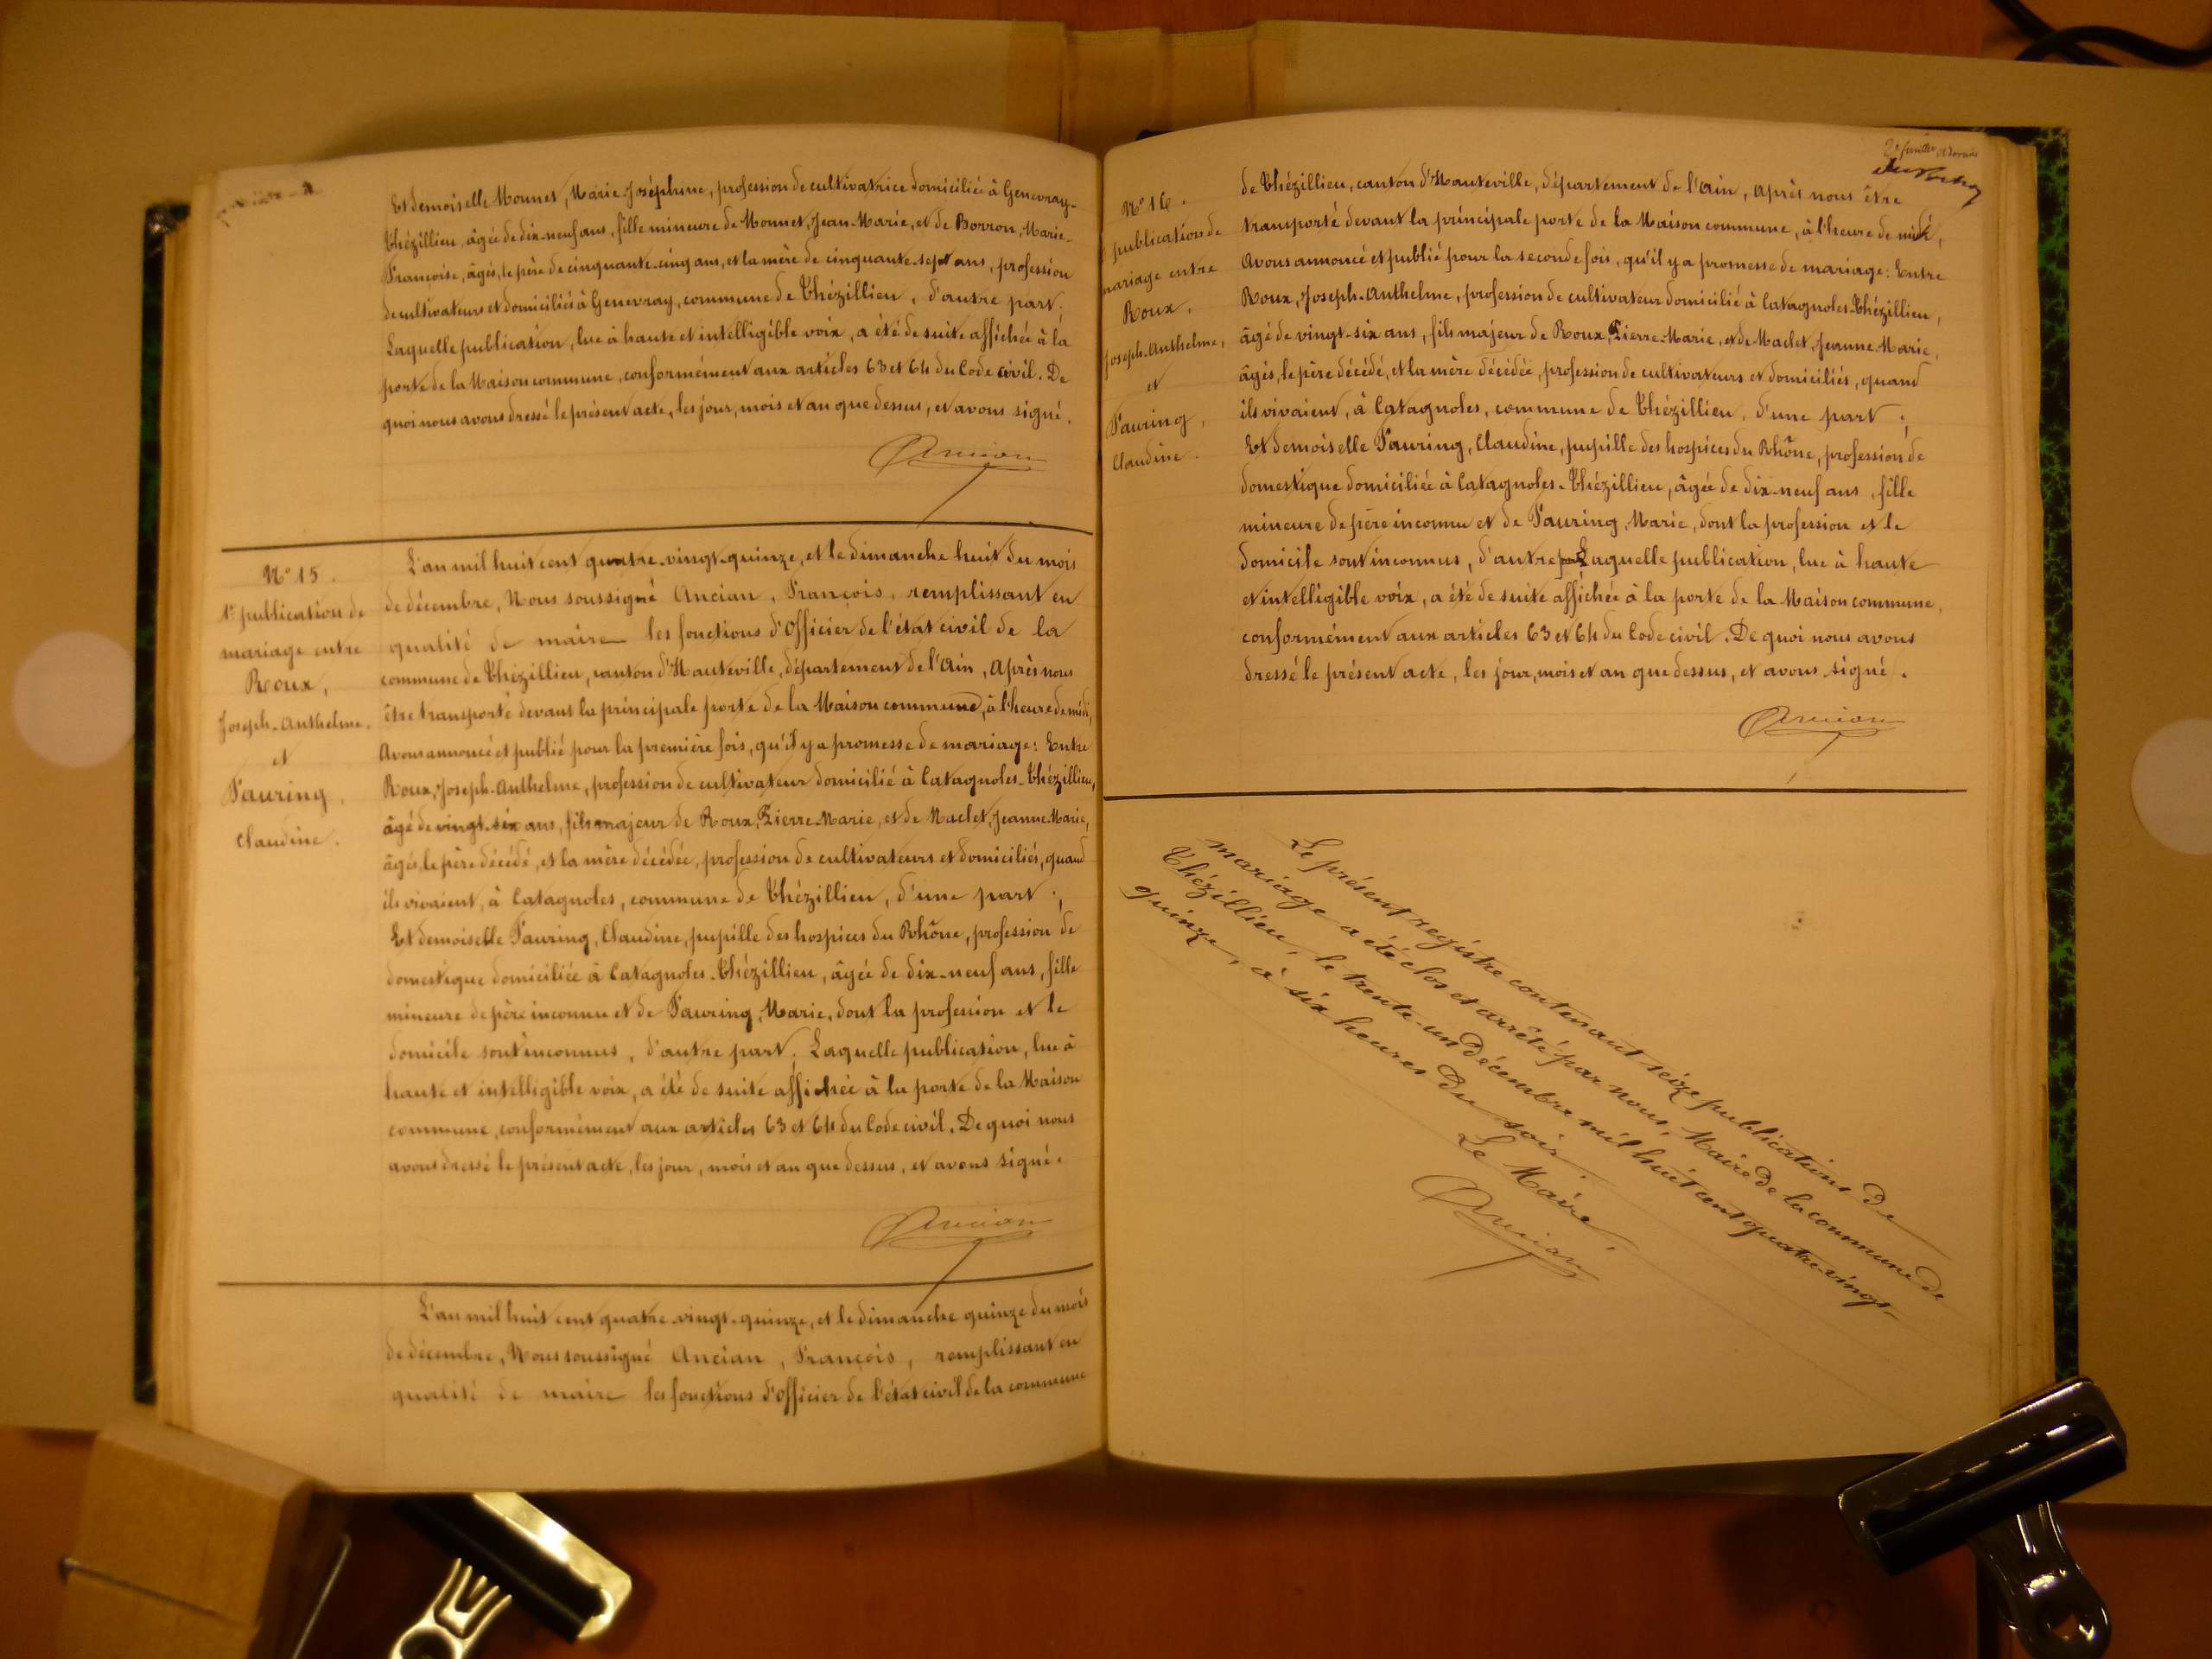 Et demoiselle Monnet, Marie-Joséphine, profession de cultivatrice domiciliée à Genevray-
Thézillieu, âgée de dix-neuf ans, fille mineure de Monnet, Jean-Marie, et de Borron, Marie-
Françoise, âgés, le père de cinquante-cinq ans, et la mère de cinquante-sept ans, profession
de cultivateurs et domiciliés à Genevray, commune de Thézillieu, d'autre part;
Laquelle publication, lue à haute et intelligible voix, a été de suite affichée à la
porte de la Maison commune, conformément aux articles 63 et 64 du Code civil. De
quoi nous avons dressé le présent acte, les jour, mois et an que dessus, et avons signé.
Ancian
N° 15.
1re publication de
mariage entre
Roux,
Joseph-Anthelme.
et
Fauring,
Claudine.
L'an mil huit cent quatre-vingt-quinze, et le dimanche huit du mois
de décembre, Nous soussigné Ancian, François, remplissant en
qualité de maire les fonctions d'Officier de l'état civil de la
commune de Thézillieu, canton d'Hauteville, département de l'Ain, Après nous
être transporté devant la principale porte de la Maison commune, à l'heure de midi,
Avons annoncé et publié pour la première fois, qu'il y a promesse de mariage: Entre
Roux, Joseph-Anthelme, profession de cultivateur domicilié à Catagnoles-Thézillieu,
âgé de vingt-six ans, fils majeur de Roux, Pierre-Marie, et de Maclet, Jeanne-Marie,
âgés, le père décédé, et la mère décédée, profession de cultivateurs et domiciliés, quand
ils vivaient, à Catagnoles, commune de Thézillieu, d'une part;
Et demoiselle Fauring, Claudine, pupille des hospices du Rhône, profession de
domestique domiciliée à Catagnoles-Thézillieu, âgée de dix-neuf ans, fille
mineure de père inconnu et de Fauring, Marie, dont la profession et le
domicile sont inconnus, d'autre part; Laquelle publication, lue à
haute et intelligible voix, a été de suite affichée à la porte de la Maison
commune, conformément aux articles 63 et 64 du Code civil. De quoi nous
avons dressé le présent acte, les jour, mois et an que dessus, et avons signé.
Ancian
L'an mil huit cent quatre-vingt-quinze, et le dimanche quinze du mois
de décembre, Nous soussigné Ancian, François, remplissant en
qualité de maire les fonctions d'Officier de l'état civil de la commune
N° 16.
publication de
mariage entre
Roux,
Joseph-Anthelme,
et
Fauring,
Claudine.
2e feuille
de Thézillieu, canton d'Hauteville, département de l'Ain, Après nous être
transporté devant la principale porte de la Maison commune, à l'heure de midi,
Avons annoncé et publié pour la seconde fois, qu'il y a promesse de mariage: Entre
Roux, Joseph-Anthelme, profession de cultivateur domicilié à Catagnoles-Thézillieu,
âgé de vingt-six ans, fils majeur de Roux, Pierre-Marie, et de Maclet, Jeanne-Marie,
âgés, le père décédé, et la mère décédée, profession de cultivateurs et domiciliés, quand
ils vivaient, à Catagnoles, commune de Thézillieu, d'une part;
Et demoiselle Fauring, Claudine, pupille des hospices du Rhône, profession de
domestique domiciliée à Catagnoles-Thézillieu, âgée de dix-neuf ans, fille
mineure de père inconnu et de Fauring, Marie, dont la profession et le
domicile sont inconnus, d'autre part Laquelle publication, lue à haute
et intelligible voix, a été de suite affichée à la porte de la Maison commune,
conformément aux articles 63 et 64 du Code civil. De quoi nous avons
dressé le présent acte, les jour, mois et an que dessus, et avons signé.
Ancian
Le présent registre contenant seize publications de
mariage a été clos et arrêté par nous, Maire de la commune de
Thézillieu, le trente-un décembre mil huit cent quatre-vingt-
quinze, à six heures du soir.
Le Maire,
Ancian